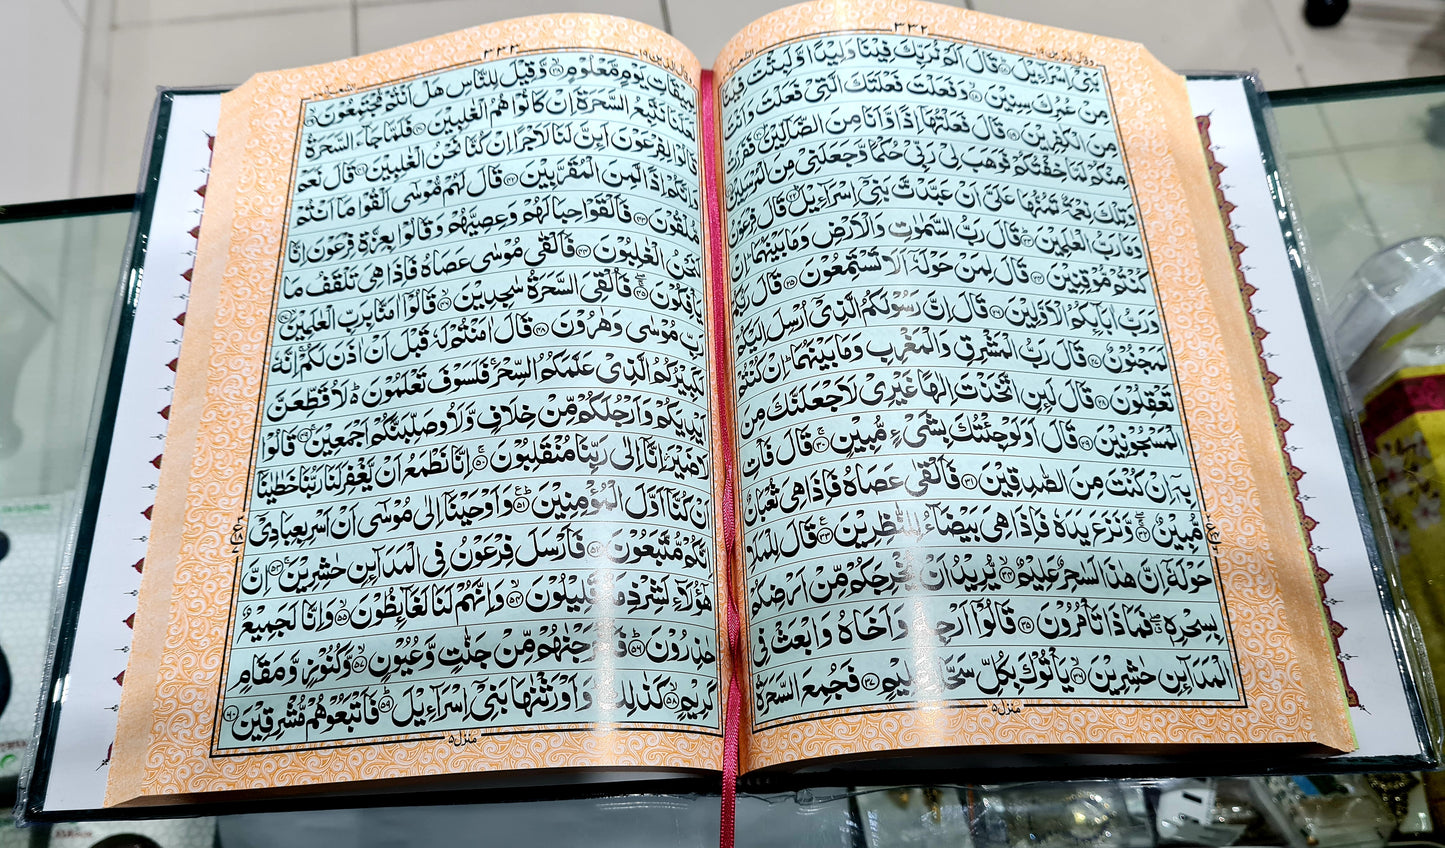 وقال الذين ١٩
٣٣٢
بَنِیْۤ اِسْرَآءِیْلَ ۟ قَالَ اَلَمْ نُرَبِّكَ فِیْنَا وَلِیْدًا وَّلَبِثْتَ فِیْنَا
مِنْ عُمُرِكَ سِنِیْنَ ۟ وَفَعَلْتَ فَعْلَتَكَ الَّتِیْ فَعَلْتَ وَاَنْتَ
مِنَ الْكٰفِرِیْنَ ۟ قَالَ فَعَلْتُهَاۤ اِذًا وَّاَنَا مِنَ الضَّآلِّیْنَ ۟ فَفَرَرْتُ
مِنْكُمْ لَمَّا خِفْتُكُمْ فَوَهَبَ لِیْ رَبِّیْ حُكْمًا وَّجَعَلَنِیْ مِنَ الْمُرْسَلِیْنَ
وَتِلْكَ نِعْمَةٌ تَمُنُّهَا عَلَیَّ اَنْ عَبَّدْتَّ بَنِیْۤ اِسْرَآءِیْلَ ۟ قَالَ فِرْعَوْنُ
وَمَا رَبُّ الْعٰلَمِیْنَ ۟ قَالَ رَبُّ السَّمٰوٰتِ وَالْاَرْضِ وَمَا بَیْنَهُمَا اِنْ
كُنْتُمْ مُّوْقِنِیْنَ ۟ قَالَ لِمَنْ حَوْلَهٗۤ اَلَا تَسْتَمِعُوْنَ ۟ قَالَ رَبُّكُمْ
وَرَبُّ اٰبَآىِٕكُمُ الْاَوَّلِیْنَ ۟ قَالَ اِنَّ رَسُوْلَكُمُ الَّذِیْۤ اُرْسِلَ اِلَیْكُمْ
لَمَجْنُوْنٌ ۟ قَالَ رَبُّ الْمَشْرِقِ وَالْمَغْرِبِ وَمَا بَیْنَهُمَا اِنْ كُنْتُمْ
تَعْقِلُوْنَ ۟ قَالَ لَىِٕنِ اتَّخَذْتَ اِلٰهًا غَیْرِیْ لَاَجْعَلَنَّكَ مِنَ
الْمَسْجُوْنِیْنَ ۟ قَالَ اَوَلَوْ جِئْتُكَ بِشَیْءٍ مُّبِیْنٍ ۟ قَالَ فَاْتِ
بِهٖۤ اِنْ كُنْتَ مِنَ الصّٰدِقِیْنَ ۟ فَاَلْقٰی عَصَاهُ فَاِذَا هِیَ ثُعْبَانٌ
مُّبِیْنٌ ۟ وَّنَزَعَ یَدَهٗ فَاِذَا هِیَ بَیْضَآءُ لِلنّٰظِرِیْنَ ۟ قَالَ لِلْمَلَاِ
حَوْلَهٗۤ اِنَّ هٰذَا لَسٰحِرٌ عَلِیْمٌ ۟ یُّرِیْدُ اَنْ یُّخْرِجَكُمْ مِّنْ اَرْضِكُمْ
بِسِحْرِهٖ فَمَاذَا تَاْمُرُوْنَ ۟ قَالُوْۤا اَرْجِهْ وَاَخَاهُ وَابْعَثْ فِی
الْمَدَآىِٕنِ حٰشِرِیْنَ ۟ یَاْتُوْكَ بِكُلِّ سَحَّارٍ عَلِیْمٍ ۟ فَجُمِعَ السَّحَرَةُ
منزل ٥
وقال الذين ١٩
٣٣٣
الشعراء
لِمِیْقَاتِ یَوْمٍ مَّعْلُوْمٍ ۟ وَّقِیْلَ لِلنَّاسِ هَلْ اَنْتُمْ مُّجْتَمِعُوْنَ ۟
لَعَلَّنَا نَتَّبِعُ السَّحَرَةَ اِنْ كَانُوْا هُمُ الْغٰلِبِیْنَ ۟ فَلَمَّا جَآءَ السَّحَرَةُ
قَالُوْا لِفِرْعَوْنَ اَىِٕنَّ لَنَا لَاَجْرًا اِنْ كُنَّا نَحْنُ الْغٰلِبِیْنَ ۟ قَالَ نَعَمْ
وَاِنَّكُمْ اِذًا لَّمِنَ الْمُقَرَّبِیْنَ ۟ قَالَ لَهُمْ مُّوْسٰۤی اَلْقُوْا مَاۤ اَنْتُمْ
مُّلْقُوْنَ ۟ فَاَلْقَوْا حِبَالَهُمْ وَعِصِیَّهُمْ وَقَالُوْا بِعِزَّةِ فِرْعَوْنَ اِنَّا
لَنَحْنُ الْغٰلِبُوْنَ ۟ فَاَلْقٰی مُوْسٰی عَصَاهُ فَاِذَا هِیَ تَلْقَفُ مَا
یَاْفِكُوْنَ ۟ فَاُلْقِیَ السَّحَرَةُ سٰجِدِیْنَ ۟ قَالُوْۤا اٰمَنَّا بِرَبِّ الْعٰلَمِیْنَ ۟
رَبِّ مُوْسٰی وَهٰرُوْنَ ۟ قَالَ اٰمَنْتُمْ لَهٗ قَبْلَ اَنْ اٰذَنَ لَكُمْ اِنَّهٗ
لَكَبِیْرُكُمُ الَّذِیْ عَلَّمَكُمُ السِّحْرَ فَلَسَوْفَ تَعْلَمُوْنَ لَاُقَطِّعَنَّ
اَیْدِیَكُمْ وَاَرْجُلَكُمْ مِّنْ خِلَافٍ وَّلَاُوصَلِّبَنَّكُمْ اَجْمَعِیْنَ ۟ قَالُوْا
لَا ضَیْرَ اِنَّاۤ اِلٰی رَبِّنَا مُنْقَلِبُوْنَ ۟ اِنَّا نَطْمَعُ اَنْ یَّغْفِرَ لَنَا رَبُّنَا خَطٰیٰنَاۤ
اَنْ كُنَّاۤ اَوَّلَ الْمُؤْمِنِیْنَ ۟ وَاَوْحَیْنَاۤ اِلٰی مُوْسٰۤی اَنْ اَسْرِ بِعِبَادِیْۤ
اِنَّكُمْ مُّتَّبَعُوْنَ ۟ فَاَرْسَلَ فِرْعَوْنُ فِی الْمَدَآىِٕنِ حٰشِرِیْنَ ۟ اِنَّ
هٰۤؤُلَآءِ لَشِرْذِمَةٌ قَلِیْلُوْنَ ۟ وَاِنَّهُمْ لَنَا لَغَآىِٕظُوْنَ ۟ وَاِنَّا لَجَمِیْعٌ
حٰذِرُوْنَ ۟ فَاَخْرَجْنٰهُمْ مِّنْ جَنّٰتٍ وَّعُیُوْنٍ ۟ وَّكُنُوْزٍ وَّمَقَامٍ
كَرِیْمٍ ۟ كَذٰلِكَ وَاَوْرَثْنٰهَا بَنِیْۤ اِسْرَآءِیْلَ ۟ فَاَتْبَعُوْهُمْ مُّشْرِقِیْنَ ۟
منزل ٥